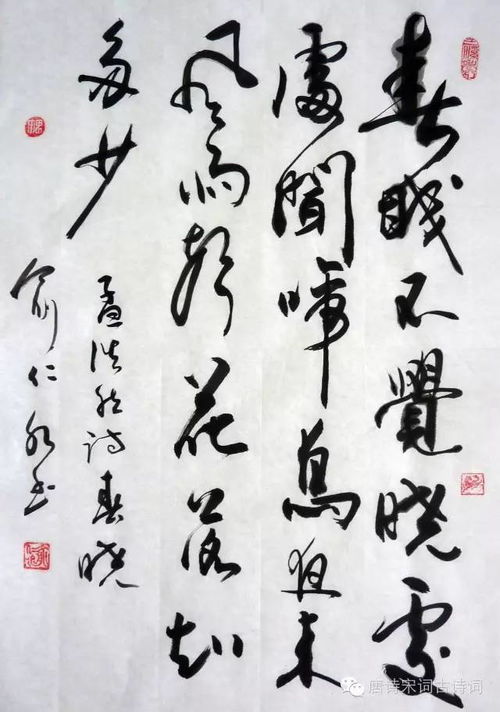 春眠不覺曉處
處聞啼鳥夜来
風雨聲花落知
多少
孟浩然诗春曉
俞仁水书
唐诗宋词古诗词